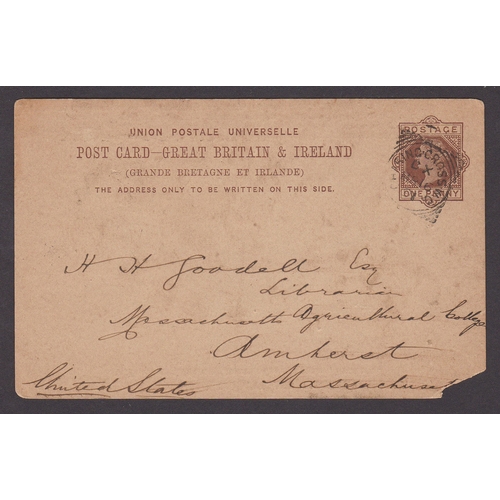 UNION POSTALE UNIVERSELLE
POST CARD—GREAT BRITAIN & IRELAND
(GRANDE BRETAGNE ET IRLANDE)
THE ADDRESS ONLY TO BE WRITTEN ON THIS SIDE.
POSTAGE
ONE PENNY
H H Goodell Esq
Librarian
Massachusetts Agricultural College
Amherst
Massachuset
United States